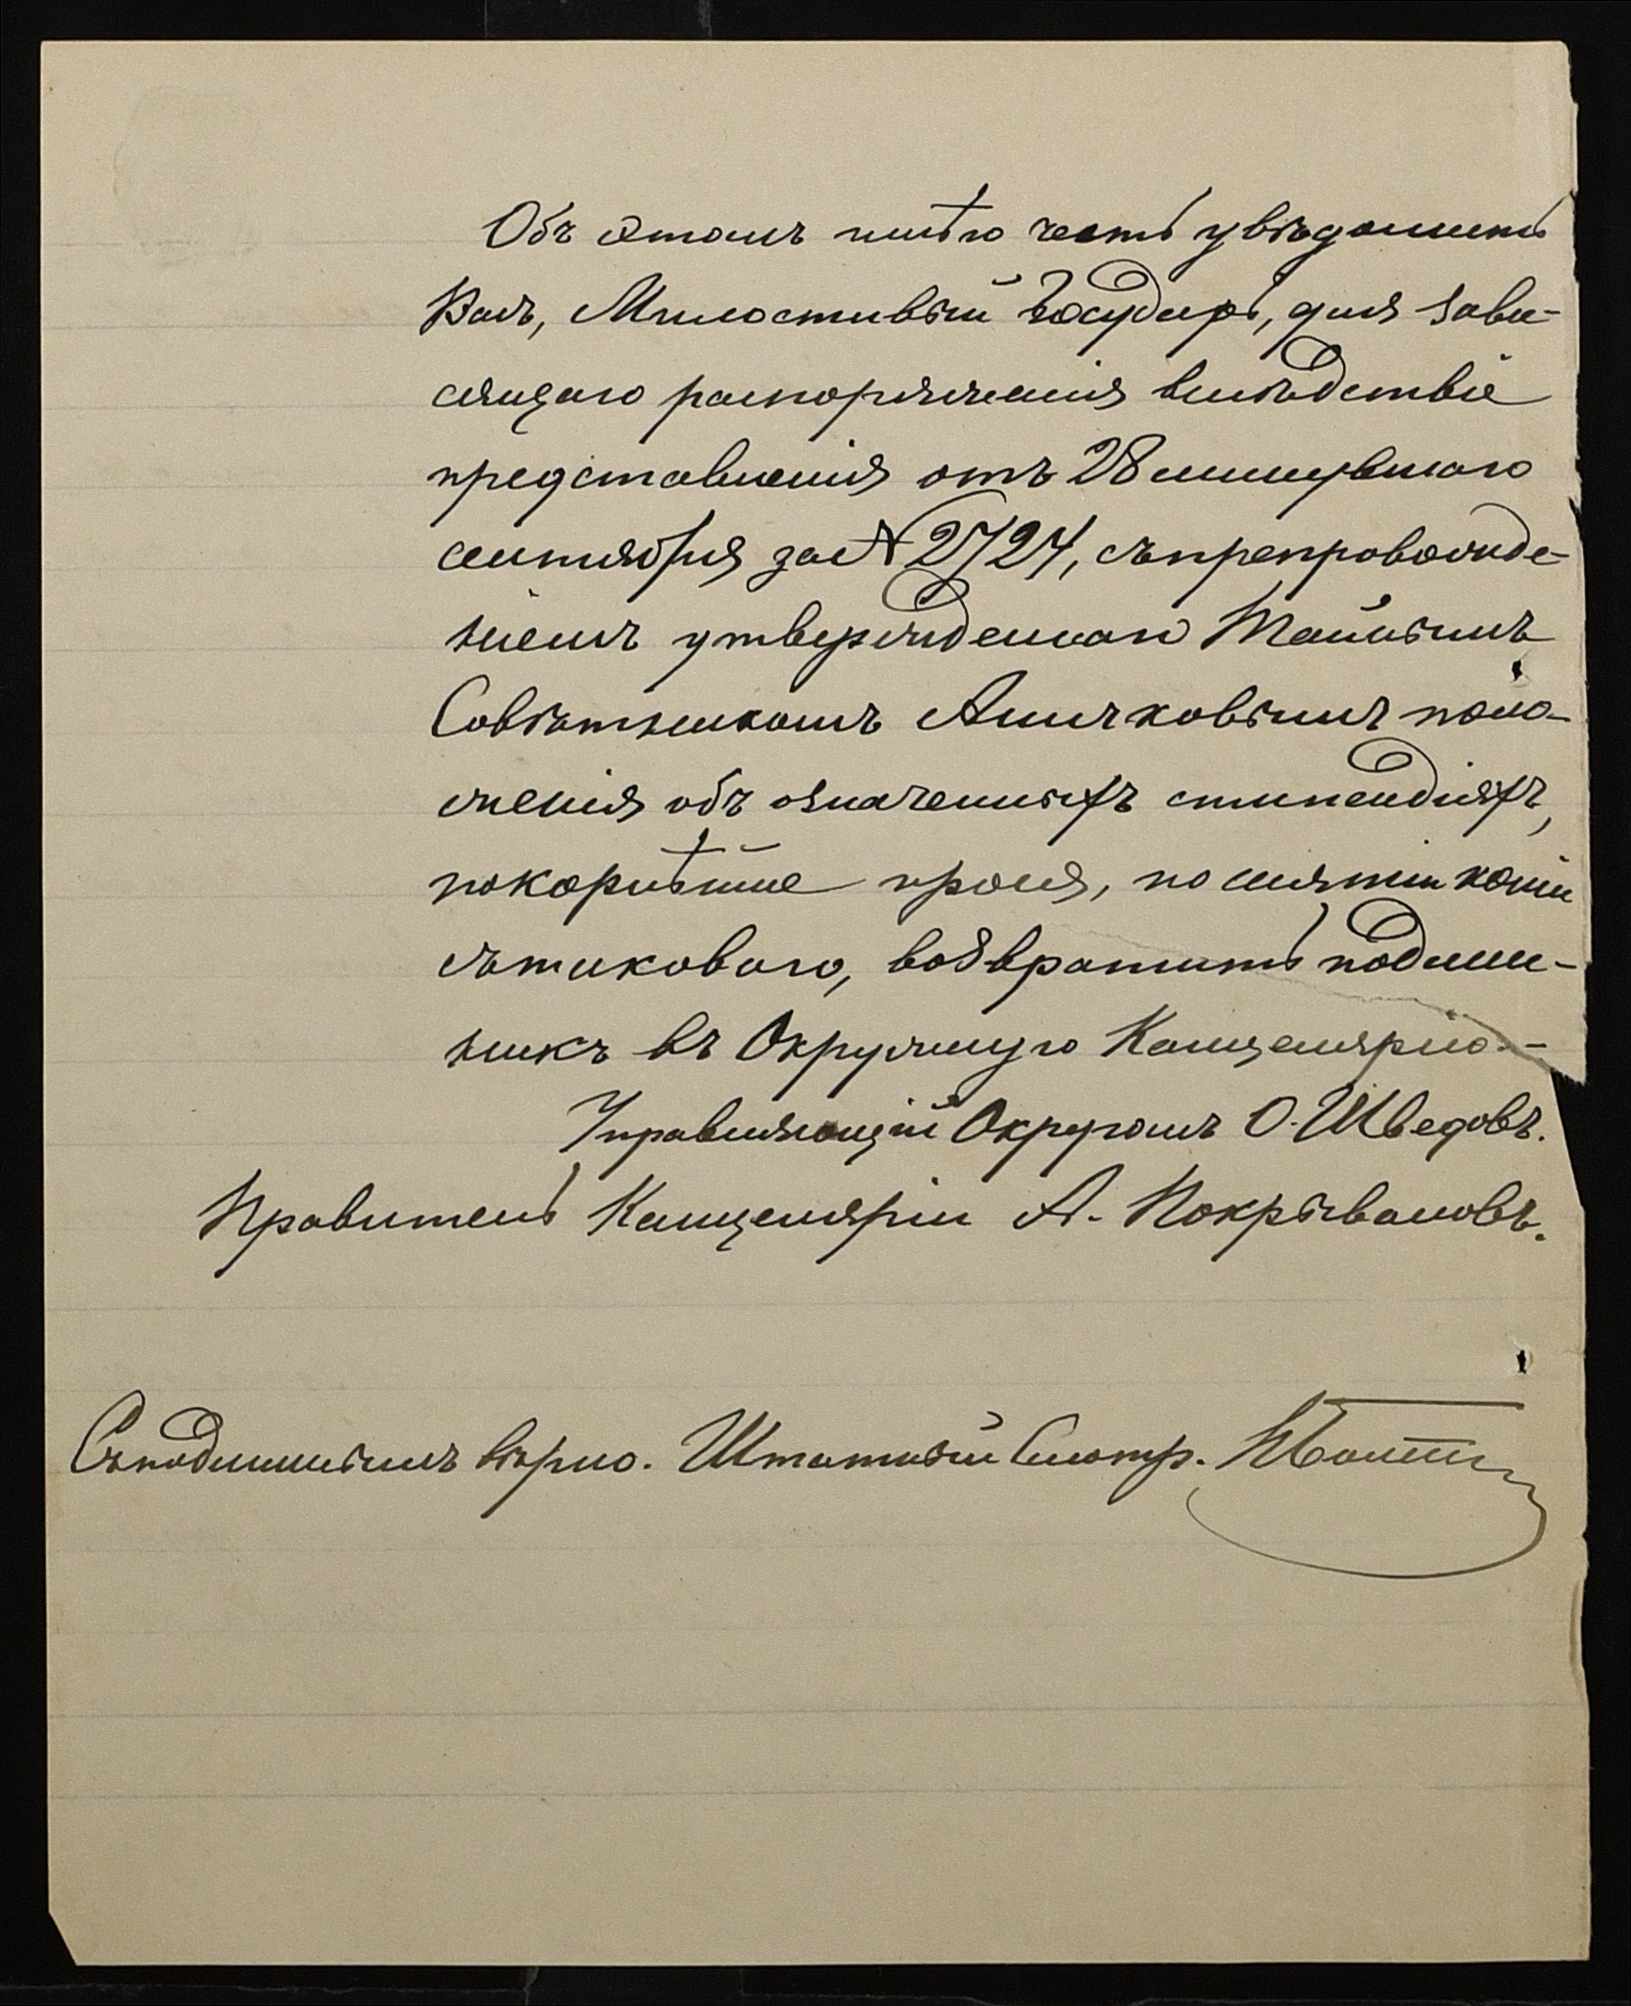 Объ этомъ имѣю честь увѣдомить
Васъ, Милостивый Государь, для зави-
сящаго распоряженія вслѣдствіе
представленія отъ 28 минувшаго
сентября за № 2724, съ препровожде-
ніемъ утвержденнаго Тайнымъ
Совѣтникомъ Аничковымъ поло-
женія объ означенныхъ стипендіяхъ,
покорнѣйше прося, по снятіи копіи
съ таковаго, возвратить подлин-
никъ въ Окружную Канцелярію.-
Управляющій Округомъ О. Шведовъ.
Правитель Канцеляріи А. Покрываловъ.
Съ подлиннымъ вѣрно. Штатный Смотр.